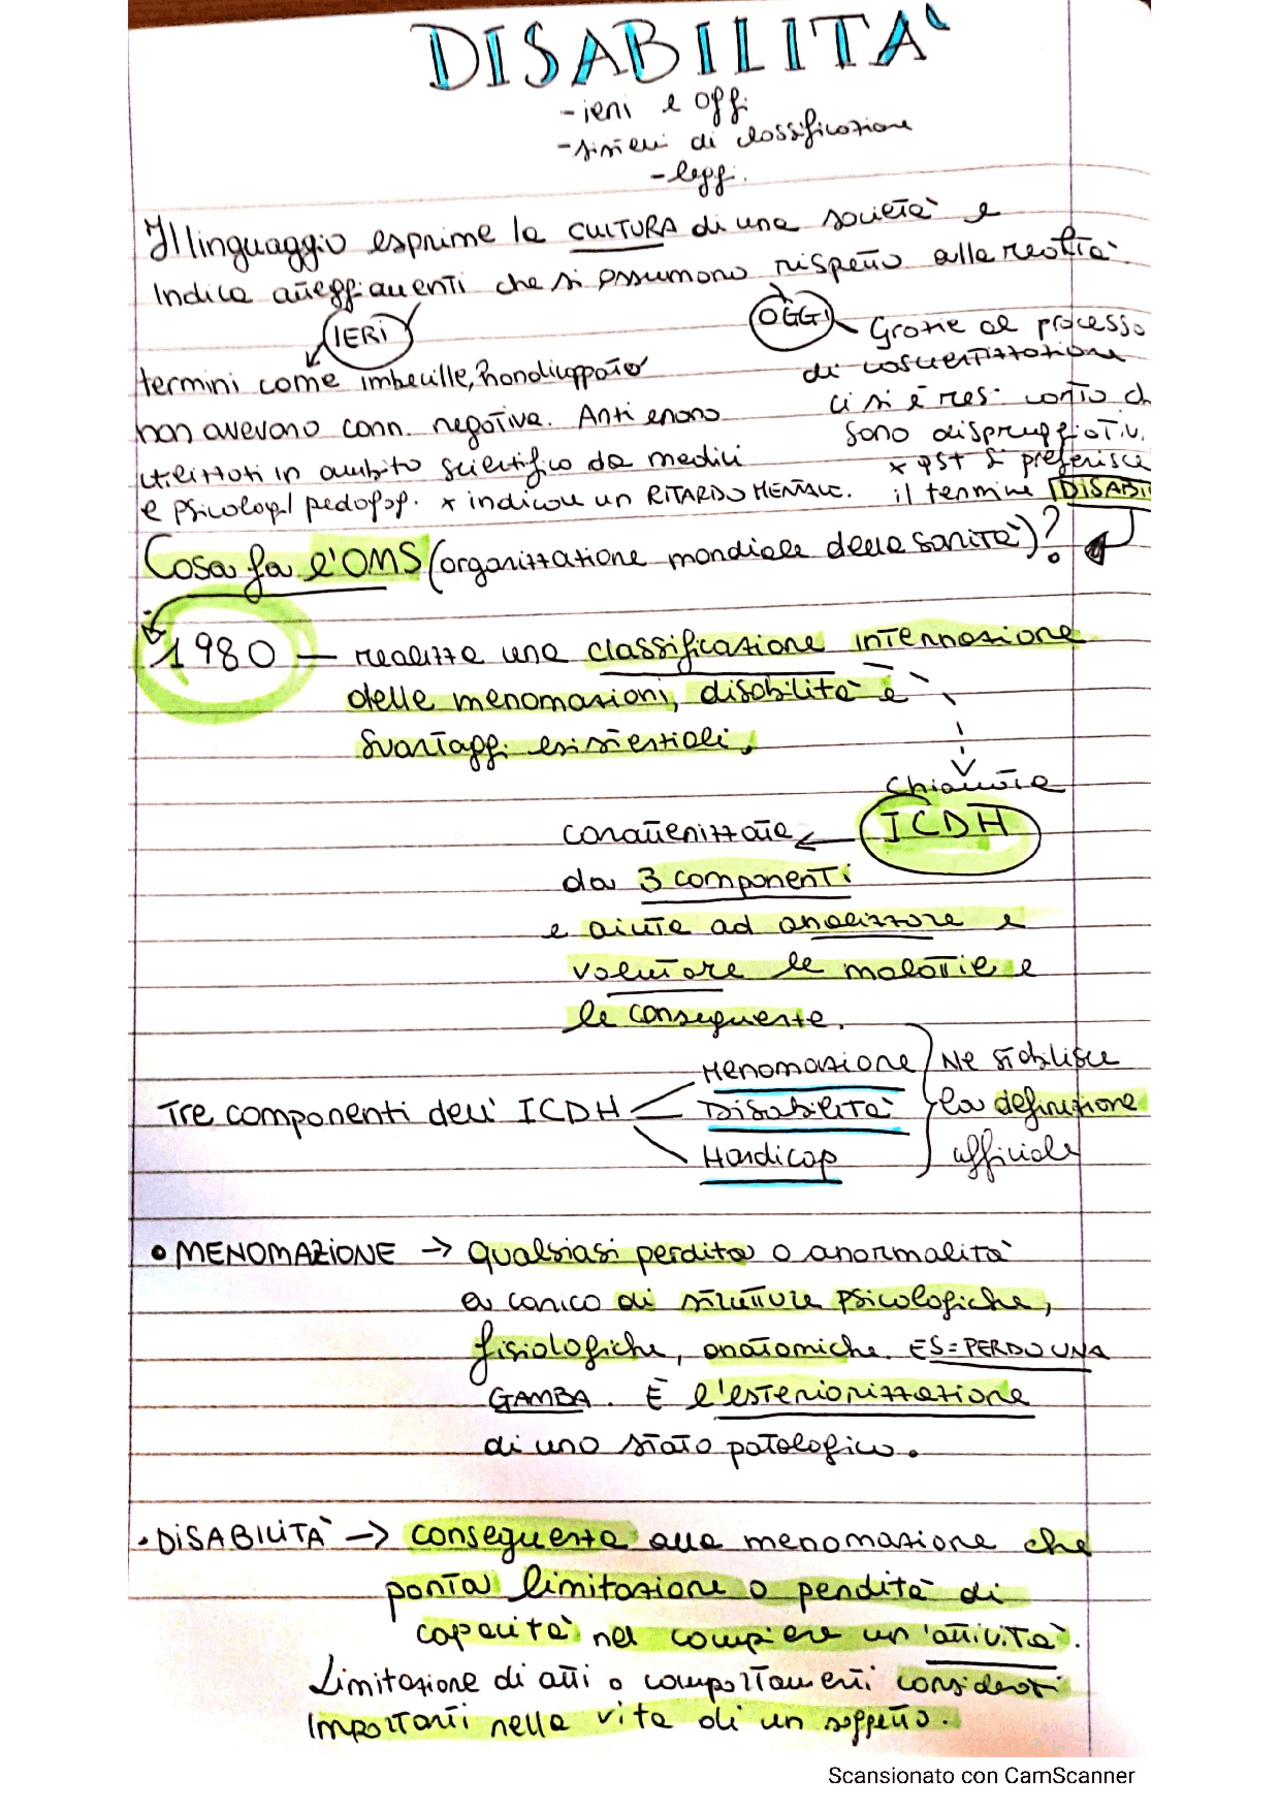 DISABILITÀ
- ieri e oggi
- sistemi di classificazione
- leggi.
Il linguaggio esprime la CULTURA di una società e
Indica atteggiamenti che si assumono rispetto alla realtà.
IERI
OGGI
Grazie al processo
termini come imbecille, handicappato
di coscientizzazione
ci si è res. conto ch
non avevano conn. negativa. Anzi erano
sono dispreggiativi.
utilizzati in ambito scientifico da medici
x qst si preferisce
e psicologi/pedagog. x indicare un RITARDO MENTALE.
il termine DISABI
Cosa fa l'OMS (organizzazione mondiale della sanità)?
1980 — realizza una classificazione internazione
delle menomazioni, disabilità e
svantaggi esistenziali.
chiamata
ICDH
caratterizzata
da 3 componenti
e aiuta ad analizzare e
valutare le malattie e
le conseguenze.
Menomazione
Ne stabilisce
Tre componenti dell' ICDH
Disabilità
la definizione
Handicap
ufficiale
• MENOMAZIONE → qualsiasi perdita o anormalità
a carico di strutture psicologiche,
fisiologiche, anatomiche. ES = PERDO UNA
GAMBA. È l'esteriorizzazione
di uno stato patologico.
• DISABILITÀ → conseguenza alla menomazione che
porta limitazione o perdita di
capacità nel compiere un'attività.
Limitazione di atti o comportamenti considerati
Importanti nella vita di un soggetto.
Scansionato con CamScanner